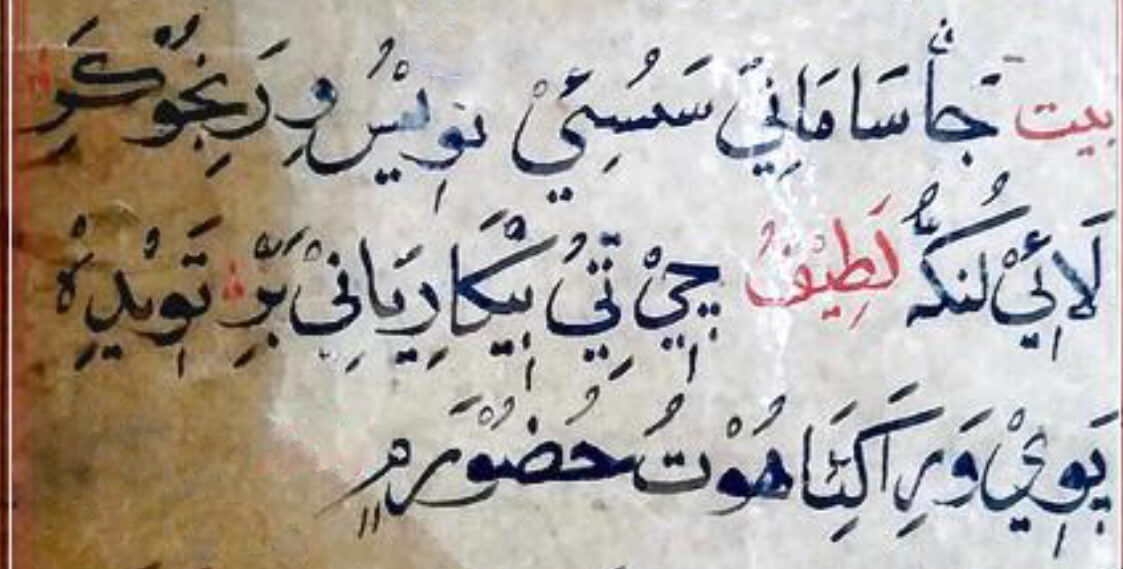 بيت جاٴ سَا مَانِيْ سَسُئِيْ نوِيْسُ وِ رَنِجُوْ كَرِ
لَائِيْ لنكهُّ لَطِيْفُ چِيْ تِيُ بِيْكَارِيَانِيْ بَرِّ تَوِيْدِهْ
پَوِيْ وَرِ اَكِيَا هُوْتُ حُضُوْرَ ۾